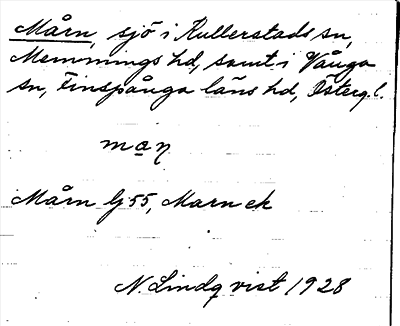 Mårn, sjö i Kullerstads sn,
Memmings hd, samt i Vånga
sn, Finspånga läns hd, Österg. l.
man̥
Mårn lj 55, Marn ek
N. Lindqvist 1928